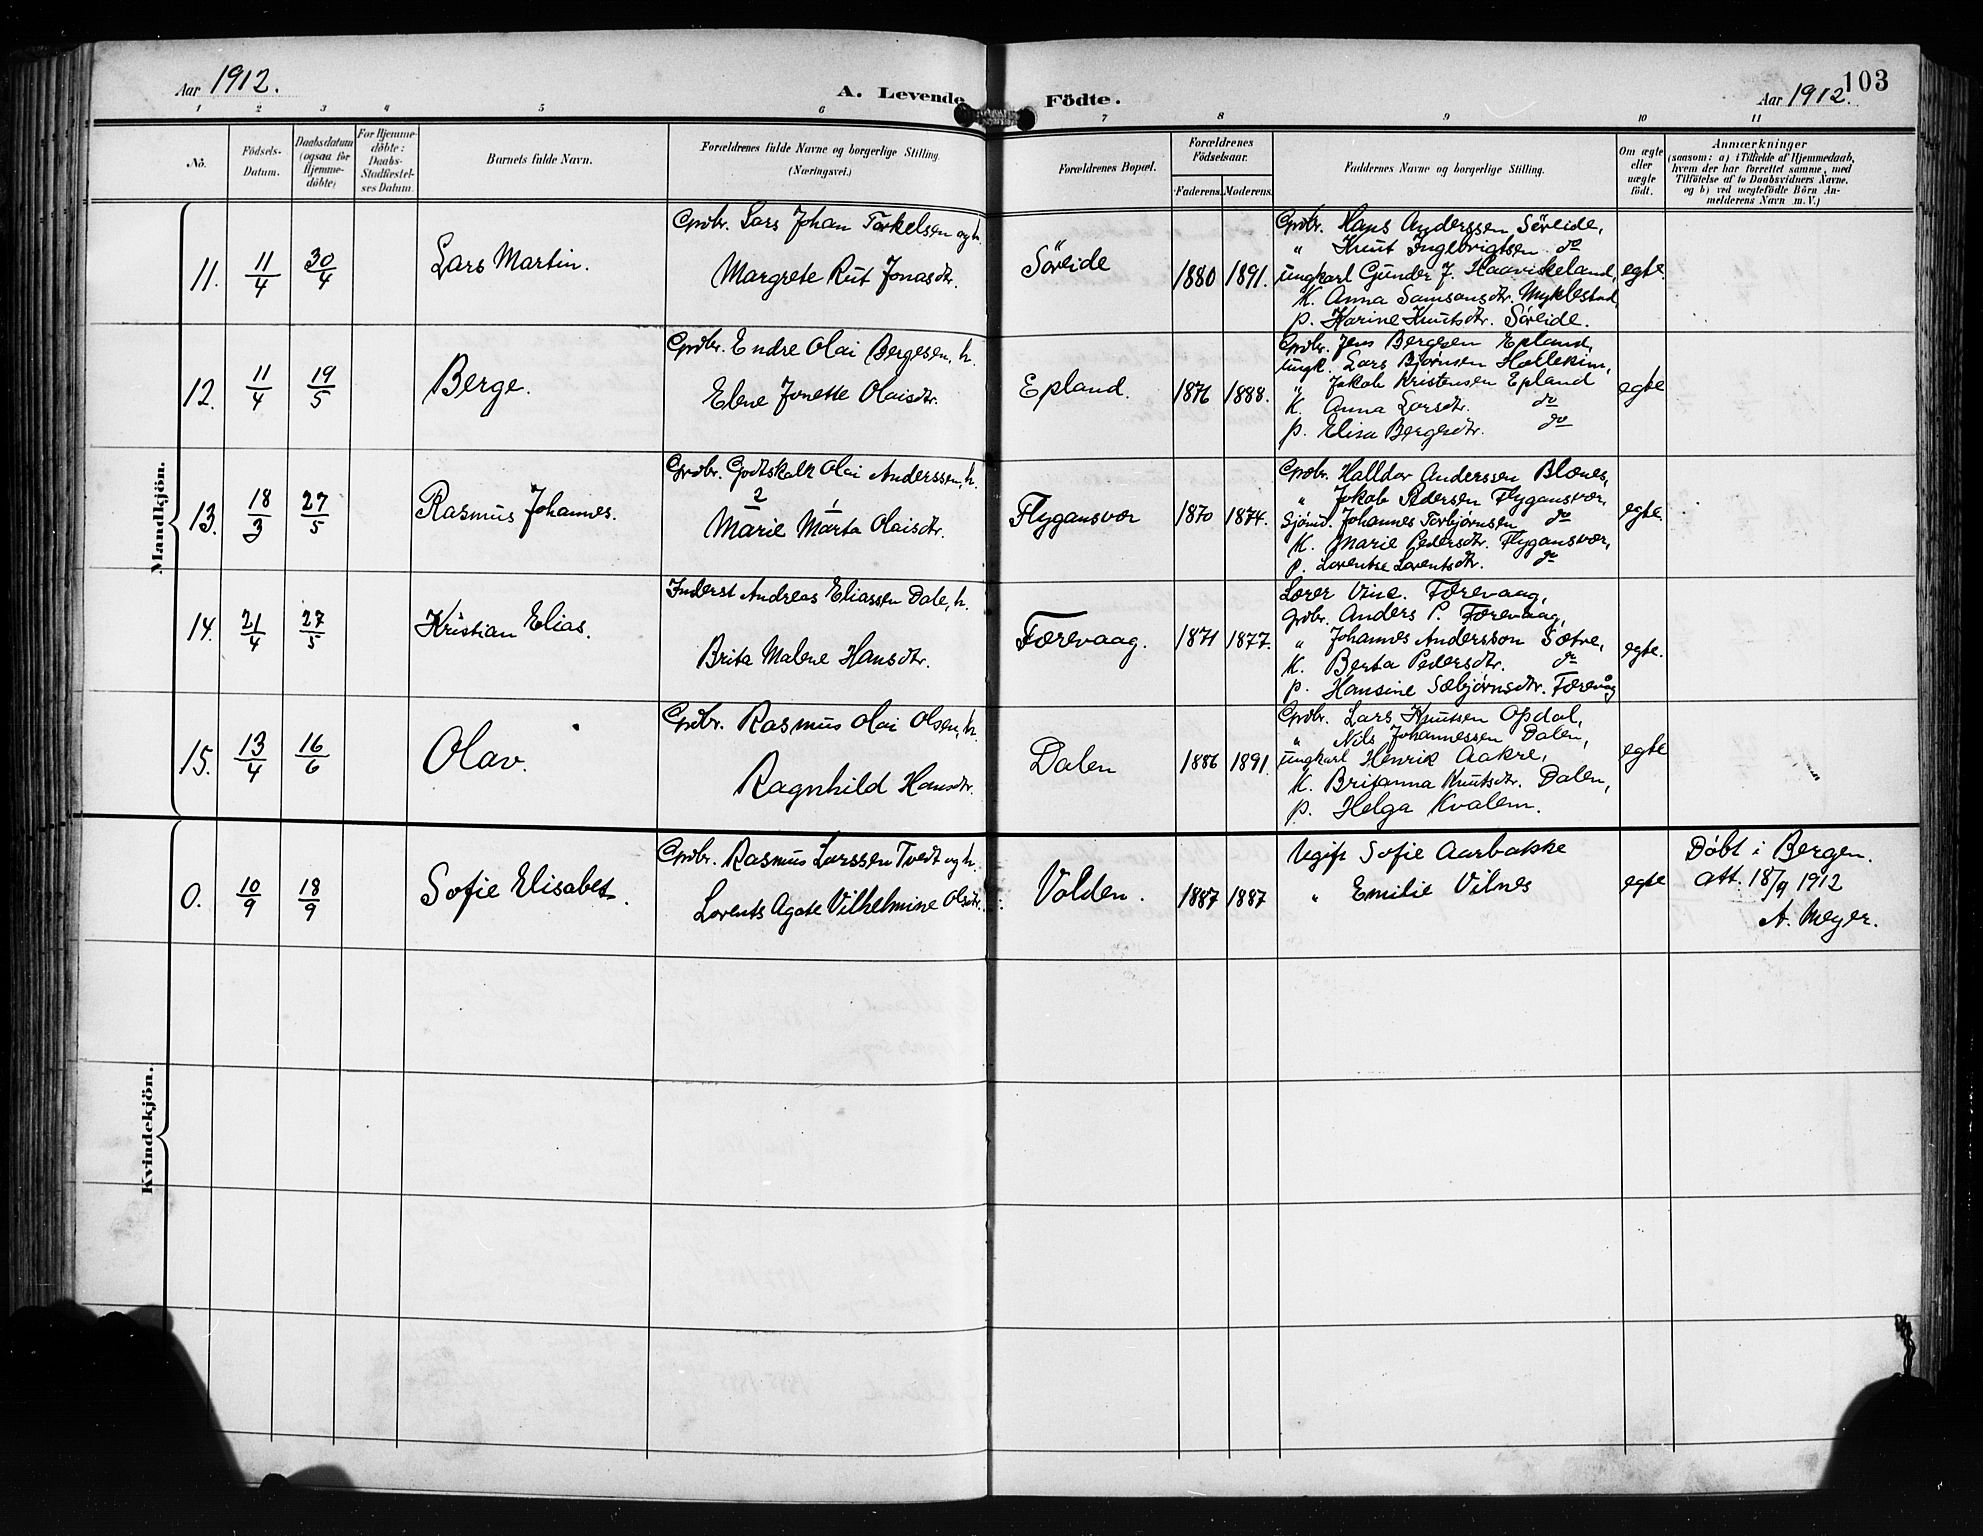 Aar 1912. A. Levende Födte. Aar 1912. 103
1 2 3 4 5 6 7 8 9 10 11
No. Födsels-Datum. Daabsdatum (ogsaa for Hjemmedöbte; For Hjemmedöbte: Daabs-Stadfæstelses Datum. Barnets fulde Navn. Forældrenes fulde Navne og borgerlige Stilling. (Næringsvei.) Forældrenes Bopæl. Forældrenes Födselsaar. Faderens. Moderens. Faddernes Navne og borgerlige Stilling. Om ægte eller uægte födt. Anmærkninger
(saasom: a) i Tilfælde af Hjemmedaab, hvem der har forrettet samme, med Tilföielse af to Daabsvidners Navne. og b) ved uægtefödte Börn Anmelderens Navn m. V.)
Mandkjön.
11. 11/4 30/4 Lars Martin. Grdbr. Lars Johan Torkelsen og h.
Margrete Rut Jonasdtr.
Söreide 1880 1891. egte.
Grdbr. Hans Anderssen Söreide,
" Knut Ingebrigtsen do
Ungkarl Gunder J. Haaviskeland,
K. Anna Samsonsdtr. Myklestad
p. Karine Knutsdtr. Söreide.
12. 11/4 19/5 Berge. Grdbr. Endre Olai Bergesen, h.
Elene Jonette Olaisdtr.
Epland. 1876 1888. egte
Grdbr. Jens Bergesen Epland,
Ungk. Lars Bjørnsen Hallekim,
" Jakob Kristensen Epland
K. Anna Larsdtr. do
p. Elisa Bergesdtr. do
13. 18/3 27/5 Rasmus Johannes. Grdbr. Godtskalk Olai Anderssen, h.
2 1
Marie Marta Olaisdtr.
Flygansvær 1870 1874. egte.
Grdbr. Halldor Anderssen Blænes,
" Jakob Pedersen Flygansvær,
Sjömd. Johannes Torbjørnsen do
K. Marie Pedersdtr. Flygansvær,
p. Lorentse Lorentsdtr. do
14. 21/4 27/5 Kristian Elias. Inderst Andreas Eliassen Dale, h.
Brita Malene Hansdtr.
Færevaag. 1871 1877. egte.
Lærer Vine. Færevaag,
Grdbr. Anders P. Færevaag,
" Johannes Andersson Sætre,
K. Berta Pedersdtr. do
p. Hansine Sæbjørnsdtr. Færevåg
15. 13/4 16/6 Olav. Grdbr. Rasmus Olai Olsen, h.
Ragnhild Hansdtr.
Dalen 1886 1891. egte
Grdbr. Lars Knutsen Opdal,
" Nils Johannessen Dalen,
Ungkarl Henrik Aakre,
K. Britanna Knutsdtr. Dalen,
p. Helga Kvalem.
Kvindekjön.
0. 10/9 18/9 Sofie Elisabet. Grdbr. Rasmus Larssen Tvedt og h.
Lorents Agate Vilhelmine Olsdtr.
Valden. 1887 1887 egte
Ugift Sofie Aarbakke
" Emilie Vilnes
Döbt i Bergen.
Att. 18/9 1912
A. Meyer.